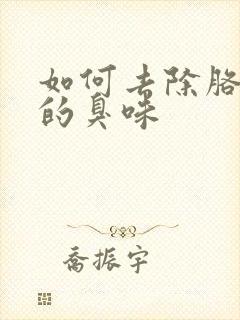 如何去除胳
的臭味
乔振宇